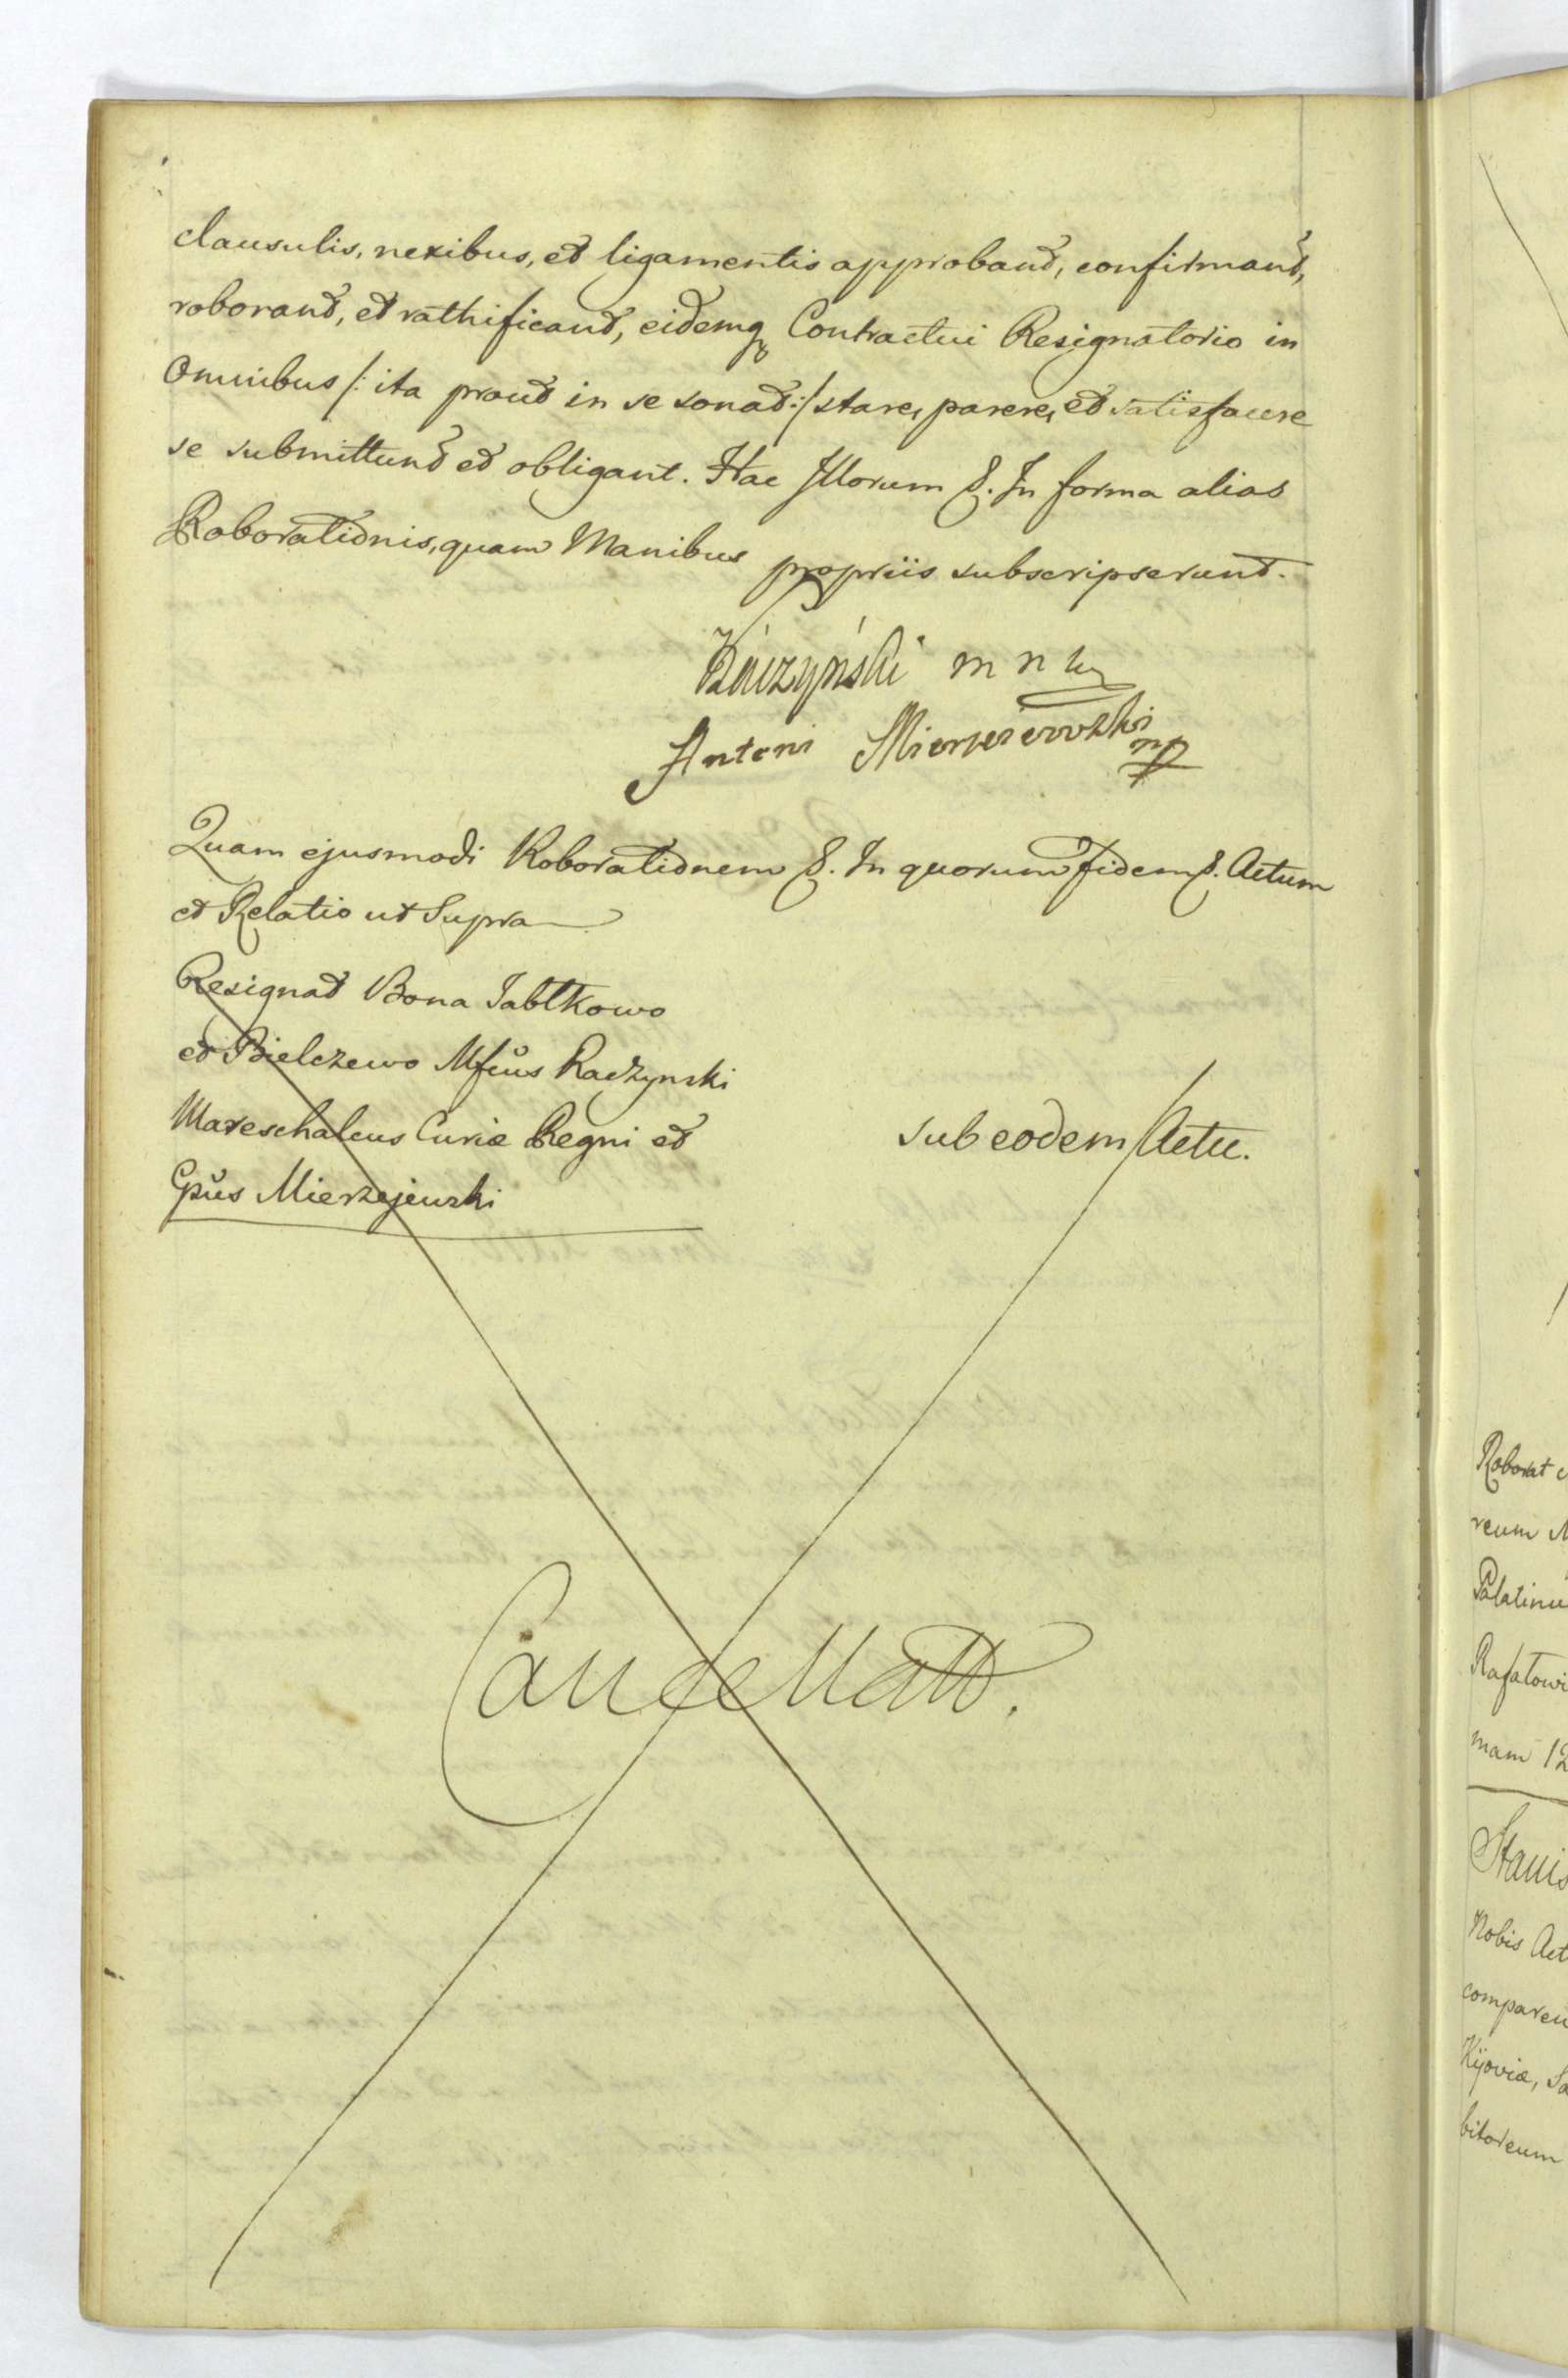 clausulis, nexibus, et ligamentis approbant, confirmant,
roborant, et rathificant, eidemq Contractui Resignatorio in
Omnibus /: ita prout in se sonat :/ stare, parere, et satisfacere
se submittunt et obligant. Hac Illorum &. In forma alias
Roborationis, quam Manibus propriis subscripserunt.
Raczyński
Antoni Mierzeiewski mp
Quam ejusmodi Roborationem &. In quorum fidem &. Actum
et Relatio ut Supra
Resignat Bona Jabłkowo
et Bielczewo Mfcus Raczynski
Mareschalcus Curiæ Regni et
Gsus Mierzejewski
sub eodem Actu.
Cancellatt.
Roborat
reum
Palatinu
Rafałowi
mam 12
Stanis
Nobis Act
comparen
Kijoviæ, Sa
bitoreum